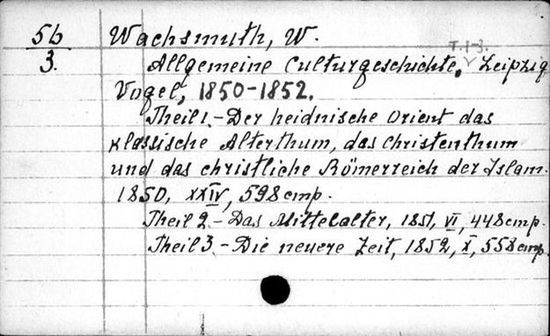 56 Wachsmuth, W.
3. T. 1-3.
Allgemeine Culturgeschichte. Leipzig
Vogel, 1850-1852.
Theil 1.-Der heidnische Orient das
klassische Alterthum, das Christenthum
und das christliche Römerreich der Islam.
1850, XXIV, 598 стр.
Theil 2.-Das Mittelalter, 1851, VI, 448 стр.
Theil 3.-Die neuere Zeit, 1852, X, 558 стр.